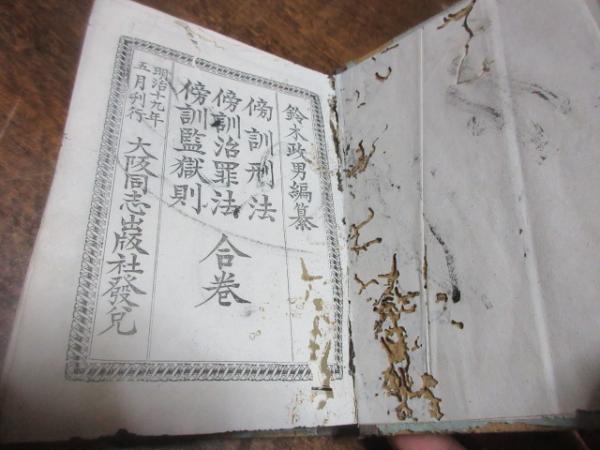 鈴木政男編纂
傍訓刑法
傍訓治罪法
傍訓監獄則
合巻
明治十九年
五月刊行
大阪同志出版社發兌